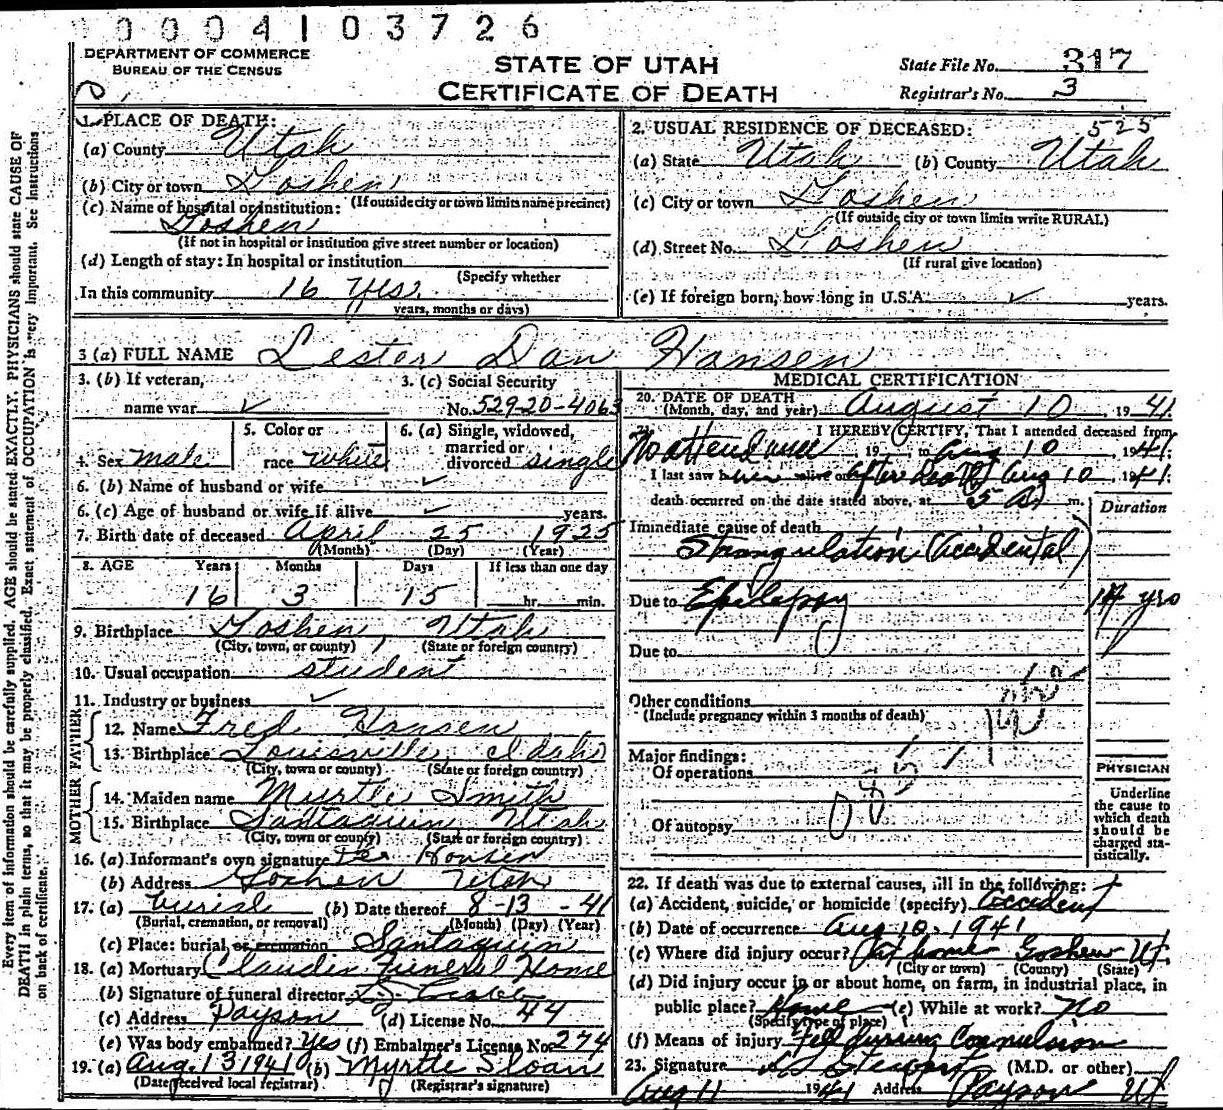 0004103726
DEPARTMENT OF COMMERCE
BUREAU OF THE CENSUS
STATE OF UTAH
CERTIFICATE OF DEATH
State File No. 317
Registrar's No. 3
1. PLACE OF DEATH:
(a) County Utah
(b) City or town Goshen
(If outside city or town limits name precinct)
(c) Name of hospital or institution:
Goshen
(If not in hospital or institution give street number or location)
(d) Length of stay: In hospital or institution
(Specify whether
In this community 16 yrs.
years, months or days)
2. USUAL RESIDENCE OF DECEASED: 525
(a) State Utah (b) County Utah
(c) City or town Goshen
(If outside city or town limits write RURAL)
(d) Street No. Goshen
(If rural give location)
(e) If foreign born, how long in U.S.A. ✓ years.
3 (a) FULL NAME Lester Dan Hansen
3. (b) If veteran, name war ✓
3. (c) Social Security No. 529-20-4063
4. Sex male
5. Color or race white
6. (a) Single, widowed, married or divorced single
6. (b) Name of husband or wife ✓
6. (c) Age of husband or wife if alive ✓ years.
7. Birth date of deceased April 25 1925
(Month) (Day) (Year)
8. AGE Years Months Days If less than one day
16 3 15 hr. min.
9. Birthplace Goshen, Utah
(City, town, or county) (State or foreign country)
10. Usual occupation student
11. Industry or business ✓
FATHER
12. Name Fred Hansen
13. Birthplace Louisville, Idaho
(City, town or county) (State or foreign country)
MOTHER
14. Maiden name Myrtle Smith
15. Birthplace Santaquin Utah
(City, town or county) (State or foreign country)
16. (a) Informant's own signature Hansen
(b) Address Goshen Utah
17. (a) burial (b) Date thereof 8-13-41
(Burial, cremation, or removal) (Month) (Day) (Year)
(c) Place: burial or cremation Santaquin
18. (a) Mortuary Claudin Funeral Home
(b) Signature of funeral director
(c) Address Payson (d) License No. 44
(e) Was body embalmed? Yes (f) Embalmer's License No. 274
19. (a) Aug. 13 1941 (b) Myrtle Sloan
(Date received local registrar) (Registrar's signature)
MEDICAL CERTIFICATION
20. DATE OF DEATH
(Month, day, and year) August 10, 1941
21. I HEREBY CERTIFY, That I attended deceased from
No attendance 19 to Aug 10, 1941.
I last saw him alive on after death Aug 10 1941.
death occurred on the date stated above, at 5 A m.
Duration
Immediate cause of death
Strangulation (Accidental)
Due to Epilepsy 14 yrs
Due to
Other conditions
(Include pregnancy within 3 months of death)
Major findings:
Of operations
Of autopsy
085
PHYSICIAN
Underline the cause to which death should be charged statistically.
22. If death was due to external causes, fill in the following:
(a) Accident, suicide, or homicide (specify) Accident
(b) Date of occurrence Aug 10, 1941
(c) Where did injury occur? At home Goshen Ut.
(City or town) (County) (State)
(d) Did injury occur in or about home, on farm, in industrial place, in
public place? Home (e) While at work? No
(Specify type of place)
(f) Means of injury Fell during Convulsion
23. Signature Stewart (M.D. or other)
Aug 11 1941 Address Payson Ut
Every item of information should be carefully supplied. AGE should be stated EXACTLY. PHYSICIANS should state CAUSE OF
DEATH in plain terms, so that it may be properly classified. Exact statement of OCCUPATION is very important. See instructions
on back of certificate.